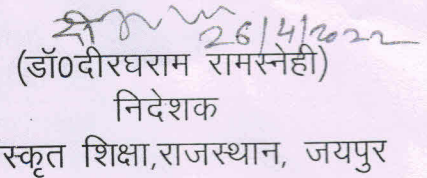 26/4/2022
(डॉ0दीरघराम रामस्नेही)
निदेशक
स्कृत शिक्षा,राजस्थान, जयपुर